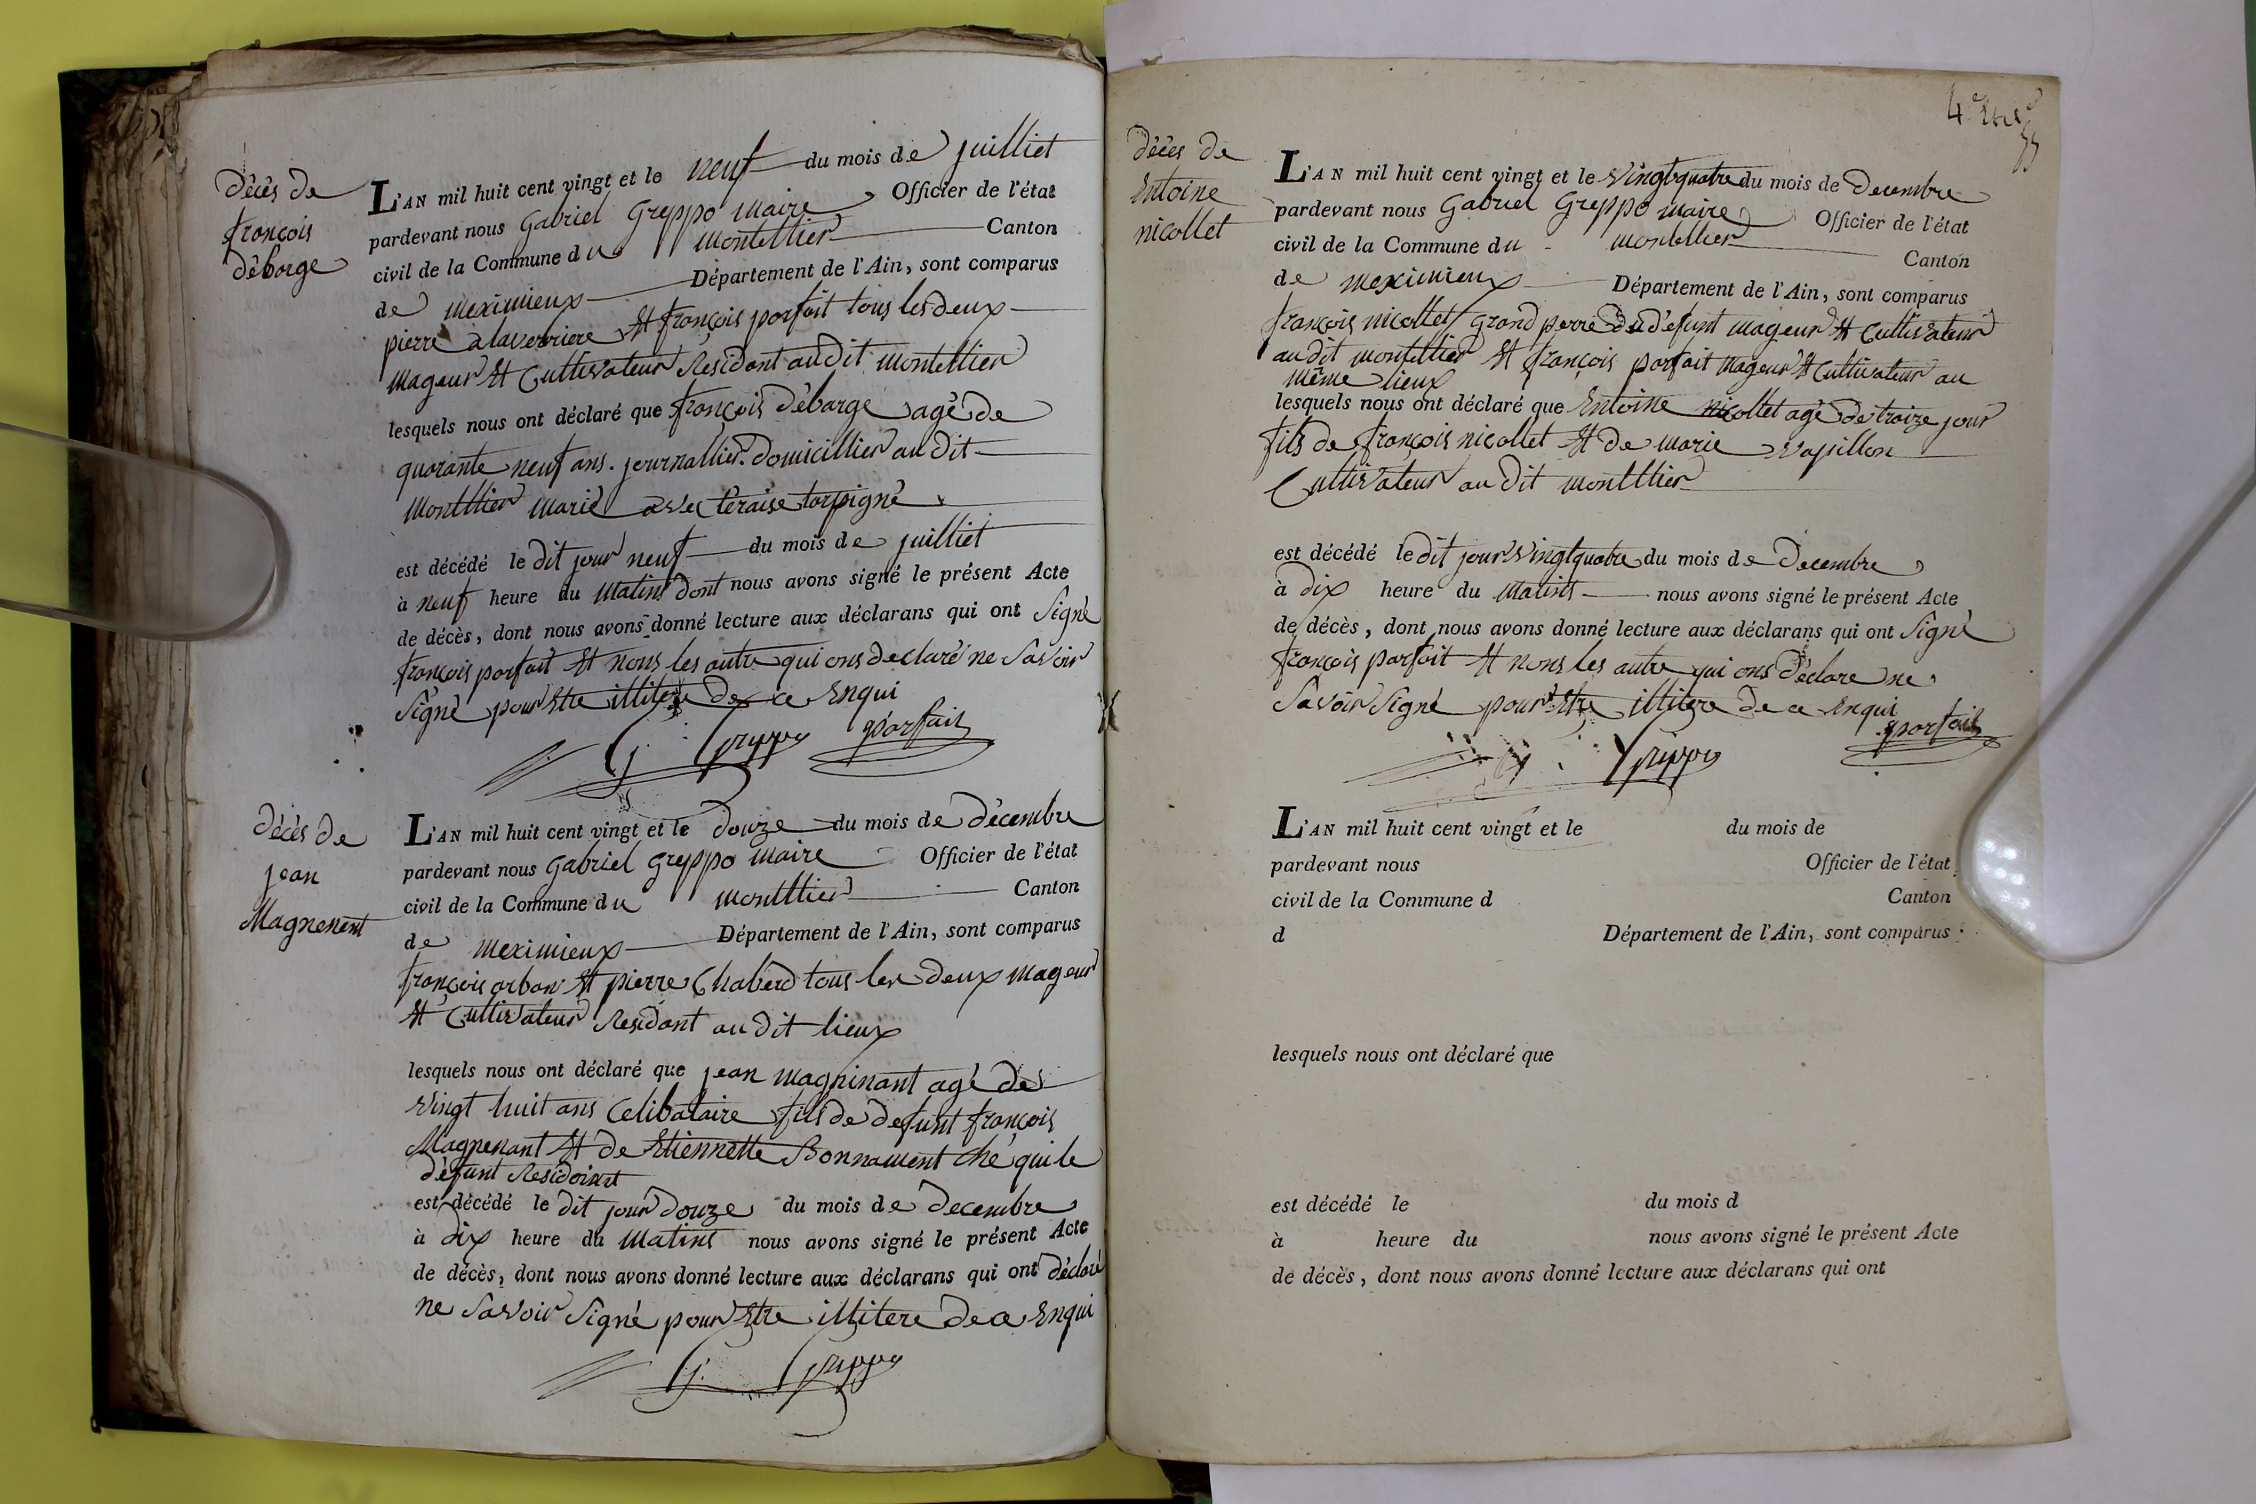 décès de
françois
déborge
L'AN mil huit cent vingt et le neuf du mois de juilliet
pardevant nous Gabriel Greppo maire Officier de l'état
civil de la Commune du montellier Canton
de meximieux Département de l'Ain, sont comparus
pierre alaverriere et françois porfait tous les deux
mageur et Cultivateur Residant au dit montellier
lesquels nous ont déclaré que françois déborge agé de
quarante neuf ans. journallier. domicillier au dit
montllier marié avec teraise torpigné
est décédé le dit jour neuf du mois de juilliet
à neuf heure du matins dont nous avons signé le présent Acte
de décès, dont nous avons donné lecture aux déclarans qui ont Signé
françois porfait et nons les autre qui ons declaré ne Savoir
Signé pour Etre illitere de ce Enqui
G. Greppo porfait
décès de
jean
Magnenent
L'AN mil huit cent vingt et le douze du mois de décembre
pardevant nous Gabriel Greppo maire Officier de l'état
civil de la Commune du montllier Canton
de meximieux Département de l'Ain, sont comparus
françois orban et pierre Chaberd tous les deux mageur
et Cultivateur Residant au dit lieux
lesquels nous ont déclaré que jean magninant agé de
vingt huit ans Celibataire fils de defunt françois
Magnenant et de Etiennette Bonnament ché qui le
défunt Residoint
est décédé le dit jour douze du mois de decembre
à dix heure du matins nous avons signé le présent Acte
de décès, dont nous avons donné lecture aux déclarans qui ont déclaré
ne Savoir Signé pour Etre illitere de ce Enqui
G. Greppo
décès de
Entoine
nicollet
L'AN mil huit cent vingt et le vingtquatre du mois de decembre
pardevant nous Gabriel Greppo maire Officier de l'état
civil de la Commune du montellier Canton
de meximieux Département de l'Ain, sont comparus
françois nicollet grond perre du défunt mageur et Cultivateur
au dit montellier et françois porfait mageur et Cultivateur au
même lieux
lesquels nous ont déclaré que Entoine nicollet agé de traize jour
fils de françois nicollet et de marie vapillon
Cultivateur au dit montllier
est décédé le dit jour vingtquatre du mois de decembre
à dix heure du matins nous avons signé le présent Acte
de décès, dont nous avons donné lecture aux déclarans qui ont Signé
françois porfait et nons les autre qui ons déclare ne
Savoir Signé pour Etre illitere de ce Enqui
G. Greppo porfait
L'AN mil huit cent vingt et le du mois de
pardevant nous Officier de l'état
civil de la Commune d Canton
d Département de l'Ain, sont comparus
lesquels nous ont déclaré que
est décédé le du mois d
à heure du nous avons signé le présent Acte
de décès, dont nous avons donné lecture aux déclarans qui ont